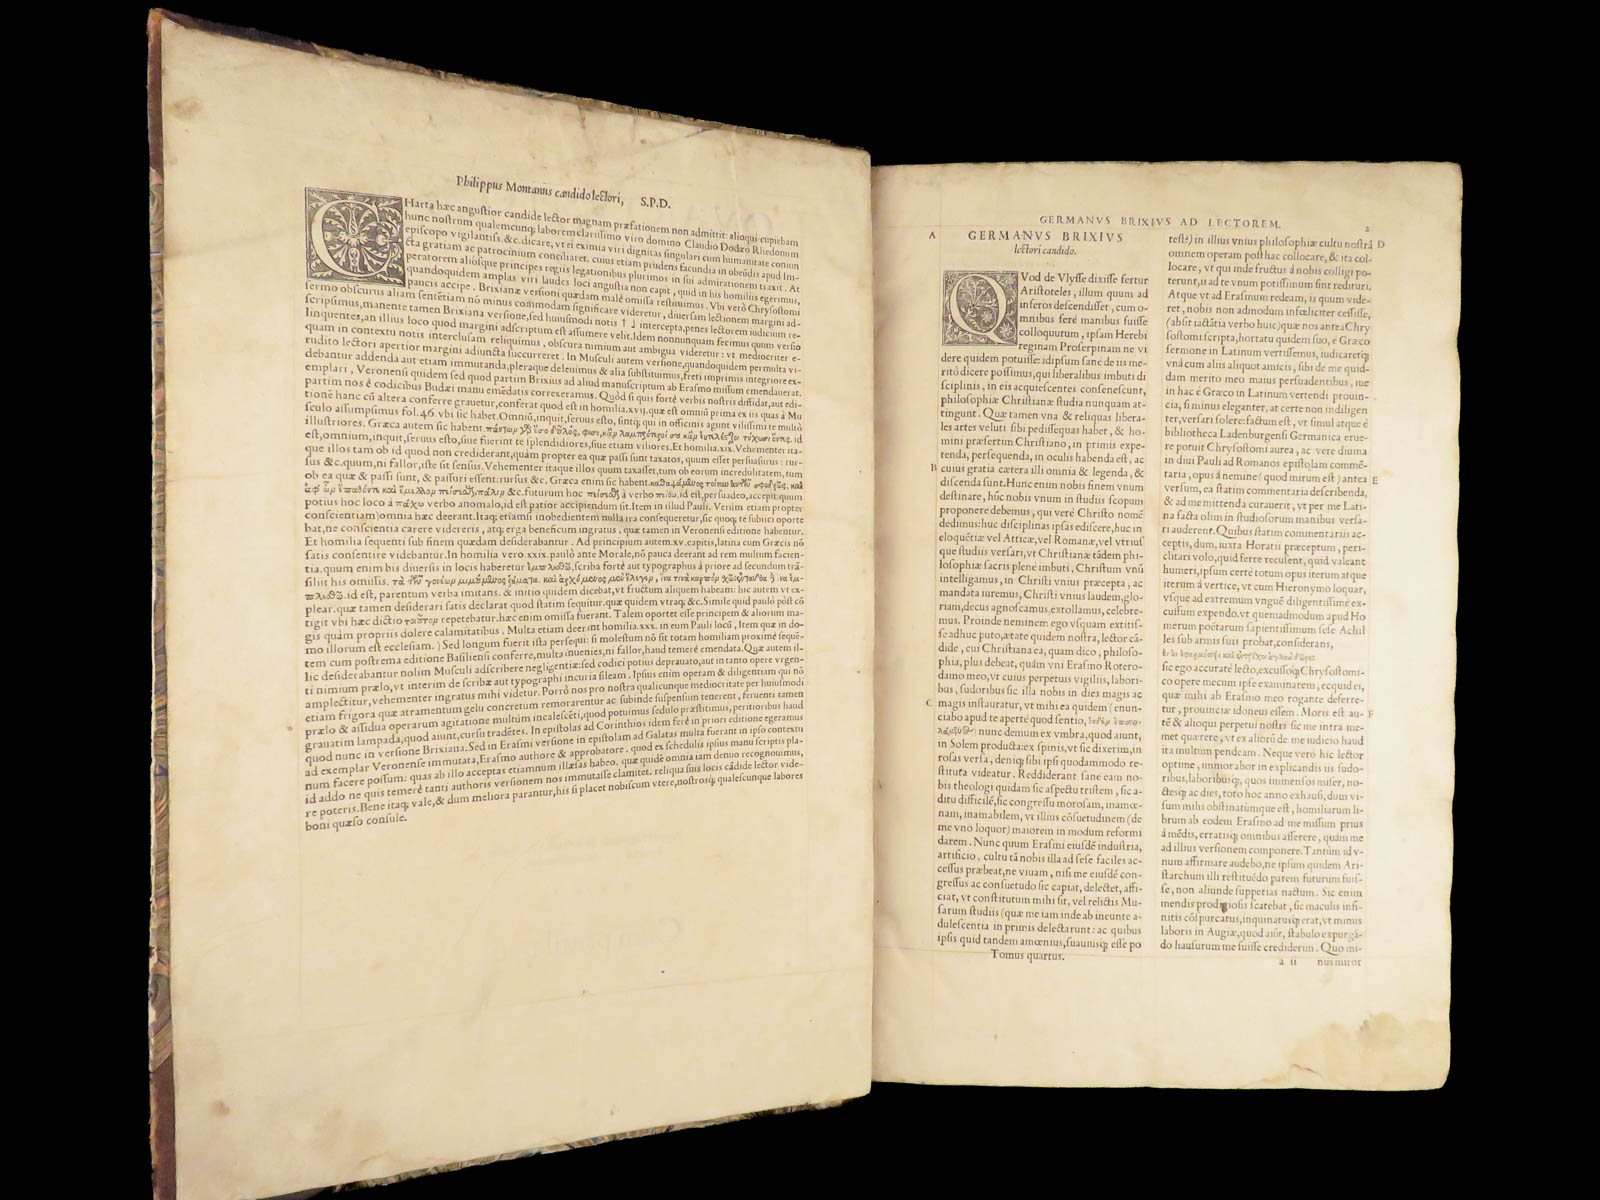 Philippus Montanus candido lectori, S.P.D.
CHarta hæc angustior candide lector magnam præfationem non admittit: alioqui cupiebam
hunc nostrum qualemcunq; laborem clarissimo viro domino Claudio Dodæo Rhedonum
episcopo vigilantiss. &c. dicare, vt ei eximia viri dignitas singulari cum humanitate coniun
cta gratiam ac patrocinium conciliaret. cuius etiam prudens facundia in obeūdis apud Im-
peratorem aliósque principes regiis legationibus plurimos in sui admirationem traxit. At
quandoquidem amplas viri laudes loci angustia non capit, quid in his homiliis egerimus,
paucis accipe. Brixianæ versioni quædam malè omissa restituimus. Vbi verò Chrysostomi
sermo obscurus aliam sententiam nō minus commodam significare videretur, diuersam lectionem margini ad-
scripsimus, manente tamen Brixiana versione, sed huiusmodi notis intercepta, penes lectorem iudicium re-
linquentes, an illius loco quod margini adscriptum est assumere velit. Idem nonnunquam fecimus quum versio
quam in contextu notis interclusam reliquimus, obscura nimium aut ambigua videretur: vt mediocriter e-
rudito lectori apertior margini adiuncta succurreret. In Musculi autem versione, quandoquidem permulta vi-
debantur addenda aut etiam immutanda, pleraque deleuimus & alia substituimus, freti imprimis integriore ex-
emplari, Veronensi quidem sed quod partim Brixius ad aliud manuscriptum ab Erasmo missum emendauerat,
partim nos è codicibus Budæi manu emēdatis correxeramus. Quòd si quis fortè verbis nostris diffidat, aut edi-
tionē hanc cū altera conferre grauetur, conferat quod est in homilia.xvij. quæ est omniū prima ex iis quas à Mu
sculo assumpsimus fol.46. vbi sic habet. Omniū, inquit, seruus esto, sintq; qui in officinis agunt vilissimi te multò
illustriores. Græca autem sic habent. id
est, omnium, inquit, seruus esto, siue fuerint te splendidiores, siue etiam viliores. Et homilia.xix. Vehementer ita-
que illos tam ob id quod non crediderant, quàm propter ea quæ passi sunt taxatos, quum esset persuasurus: rur-
sus &c. quum, ni fallor, iste sit sensus. Vehementer itaque illos quum taxasset, tum ob eorum incredulitatem, tum
ob ea quæ & passi sunt, & passuri essent: rursus &c. Græca enim sic habent.
&c. futurum hoc à verbo id est, persuadeo, accepit. quum
potius hoc loco à verbo anomalo, id est patior accipiendum sit. Item in illud Pauli. Verùm etiam propter
conscientiam) omnia hæc deerant. Itaq; etiamsi inobedientem nulla ira consequeretur, sic quoq; te subiici oporte
bat, ne conscientia carere videreris, atq; erga beneficum ingratus. quæ tamen in Veronensi editione habentur.
Et homilia sequenti sub finem quædam desiderabantur. Ad principium autem.xv. capitis, latina cum Græcis nō
satis consentire videbantur. In homilia vero xxix. paulò ante Morale, nō pauca deerant ad rem multum facien-
tia. quum enim bis diuersis in locis haberetur scriba fortè aut typographus à priore ad secundum trā-
siliit his omissis.
id est, parentum verba imitans. & initio quidem dicebat, vt fructum aliquem habeam: hic autem vt ex-
plear. quæ tamen desiderari satis declarat quod statim sequitur. quæ quidem vtraq; &c. Simile quid paulò pòst cō
tigit vbi hæc dictio repetebatur. hæc enim omissa fuerant. Talem oportet esse principem & aliorum ma-
gis quàm propriis dolere calamitatibus. Multa etiam deerant homilia.xxx. in eum Pauli locū, Item quæ in do-
mo illorum est ecclesiam.) Sed longum fuerit ista persequi: si molestum nō sit totam homiliam proximè sequē-
tem cum postrema editione Basiliensi conferre, multa inuenies, ni fallor, haud temerè emendata. Quæ autem il-
lic desiderabantur nolim Musculi adscribere negligentiæ: sed codici potius deprauato, aut in tanto opere vrgen-
ti nimium prælo, vt interim de scribæ aut typographi incuria sileam. Ipsius enim operam & diligentiam qui nō
amplectitur, vehementer ingratus mihi videtur. Porrò nos pro nostra qualicunque mediocritate per huiusmodi
etiam frigora quæ atramentum gelu concretum remorarentur ac subinde suspensum tenerent, feruenti tamen
prælo & assidua operarum agitatione multùm incalescēti, quod potuimus sedulo præstitimus, peritioribus haud
grauatim lampada, quod aiunt, cursu tradētes. In epistolas ad Corinthios idem ferè in priori editione egeramus
quod nunc in versione Brixiana. Sed in Erasmi versione in epistolam ad Galatas multa fuerant in ipso contextu
ad exemplar Veronense immutata, Erasmo authore & approbatore. quod ex schedulis ipsius manu scriptis pla-
num facere possum: quas ab illo acceptas etiamnum illæsas habeo. quæ quidē omnia iam denuo recognouimus,
id addo ne quis temerè tanti authoris versionem nos immutasse clamitet. reliqua suis locis cādide lector vide-
re poteris. Bene itaq; vale, & dum meliora parantur, his si placet nobiscum vtere, nostrosq; qualescunque labores
boni quæso consule.
GERMANVS BRIXIVS AD LECTOREM. 2
A GERMANVS BRIXIVS
lectori candido.
QVod de Vlysse dixisse fertur
Aristoteles, illum quum ad
inferos descendisset, cum o-
mnibus ferè manibus fuisse
colloquutum, ipsam Herebi
reginam Proserpinam ne vi
dere quidem potuisse: idipsum sanè de iis me-
ritò dicere possimus, qui liberalibus imbuti di
sciplinis, in eis acquiescentes consenescunt,
philosophiæ Christianæ studia nunquam at-
tingunt. Quæ tamen vna & reliquas libera-
les artes veluti sibi pedissequas habet, & ho-
mini præsertim Christiano, in primis expe-
tenda, persequenda, in oculis habenda est, ac
B cuius gratia cætera illi omnia & legenda, &
discenda sunt. Hunc enim nobis finem vnum
destinare, hūc nobis vnum in studiis scopum
proponere debemus, qui verè Christo nomē
dedimus: huc disciplinas ipsas ediscere, huc in
eloquētiæ vel Atticæ, vel Romanæ, vel vtrius
que studiis versari, vt Christianæ tādem phi-
losophiæ sacris plenè imbuti, Christum vnū
intelligamus, in Christi vnius præcepta, ac
mandata iuremus, Christi vnius laudem, glo-
riam, decus agnoscamus, extollamus, celebre-
mus. Proinde neminem ego vsquam extitis-
se adhuc puto, ætate quidem nostra, lector cā-
dide, cui Christiana ea, quam dico, philoso-
phia, plus debeat, quàm vni Erasmo Rotero-
damo meo, vt cuius perpetuis vigiliis, labori-
bus, sudoribus sic illa nobis in dies magis ac
C magis instauratur, vt mihi ea quidem (enun-
ciabo apud te apertè quod sentio,
nunc demum ex vmbra, quod aiunt,
in Solem producta: ex spinis, vt sic dixerim, in
rosas versa, deniq; sibi ipsi quodammodo re-
stituta videatur. Reddiderant sanè eam no-
bis theologi quidam sic aspectu tristem, sic a-
ditu difficilē, sic congressu morosam, inamœ-
nam, inamabilem, vt illius cōsuetudinem (de
me vno loquor) maiorem in modum reformi
darem. Nunc quum Erasmi eiusdē industria,
artificio, cultu tā nobis illa ad sese faciles ac-
cessus præbeat, ne viuam, nisi me eiusdē con-
gressus ac consuetudo sic capiat, delectet, affi-
ciat, vt constitutum mihi sit, vel relictis Mu-
sarum studiis (quæ me iam inde ab ineunte a-
dulescentia in primis delectarunt: ac quibus
ipsis quid tandem amœnius, suauiusq; esse po
Tomus quartus.
test?) in illius vnius philosophiæ cultu nostrā D
omnem operam posthac collocare, & ita col-
locare, vt qui inde fructus à nobis colligi po-
terunt, ii ad te vnum potissimum sint redituri.
Atque vt ad Erasmum redeam, is quum vide-
ret, nobis non admodum infœliciter cessisse,
(absit iactātia verbo huic) quæ nos antea Chry
sostomi scripta, hortatu quidem suo, è Græco
sermone in Latinum vertissemus, iudicaretq;
vnà cum aliis aliquot amicis, sibi de me quid-
dam merito meo maius persuadentibus, me
in hac è Græco in Latinum vertendi prouin-
cia, si minus eleganter, at certe non indiligen
ter, versari solere: factum est, vt simul atque è
bibliotheca Ladenburgensi Germanica erue-
re potuit Chrysostomi aurea, ac verè diuina
in diui Pauli ad Romanos epistolam commē-
taria, opus à nemine (quod mirum est) antea E
versum, ea statim commentaria describenda,
& ad me mittenda curauerit, vt per me Lati-
na facta olim in studiosorum manibus versa-
ri auderent. Quibus statim commentariis ac-
ceptis, dum, iuxta Horatii præceptum, peri-
clitari volo, quid ferre recusent, quid valeant
humeri, ipsum certè totum opus iterum atque
iterum à vertice, vt cum Hieronymo loquar,
vsque ad extremum vnguē diligentissimè ex-
cussum expendo. vt quemadmodum apud Ho
merum poëtarum sapientissimum sese Achil
les sub armis suis probat, considerans,
sic ego accuratè lecto, excussoq; Chrysostomi-
co opere mecum ipse examinarem, ecquid ei,
quæ mihi ab Erasmo meo rogante deferre-
tur, prouinciæ idoneus essem. Moris est au- F
tē & alioqui perpetui nostri sic me intra me-
met quærere, vt ex aliorū de me iudicio haud
ita multum pendeam. Neque verò hic lector
optime, immorabor in explicandis iis sudo-
ribus, laboribusq;, quos immensos miser, no-
ctesq; ac dies, toto hoc anno exhausi, dum vi-
sum mihi obstinatúmque est, homiliarum li-
brum ab eodem Erasmo ad me missum prius
à mēdis, erratisq; omnibus asserere, quàm me
ad illius versionem componere. Tantùm id v-
num affirmare audebo, ne ipsum quidem Ari-
starchum illi restituēdo parem futurum fuis-
se, non aliunde supperias nactum. Sic enim
mendis prodigiosis scatebat, sic maculis infi-
nitis cōspurcatus, inquinatusq; erat, vt minus
laboris in Augiæ, quod aiūt, stabulo expurgā-
do hausurum me fuisse crediderim. Quo mi-
a ii nus miror